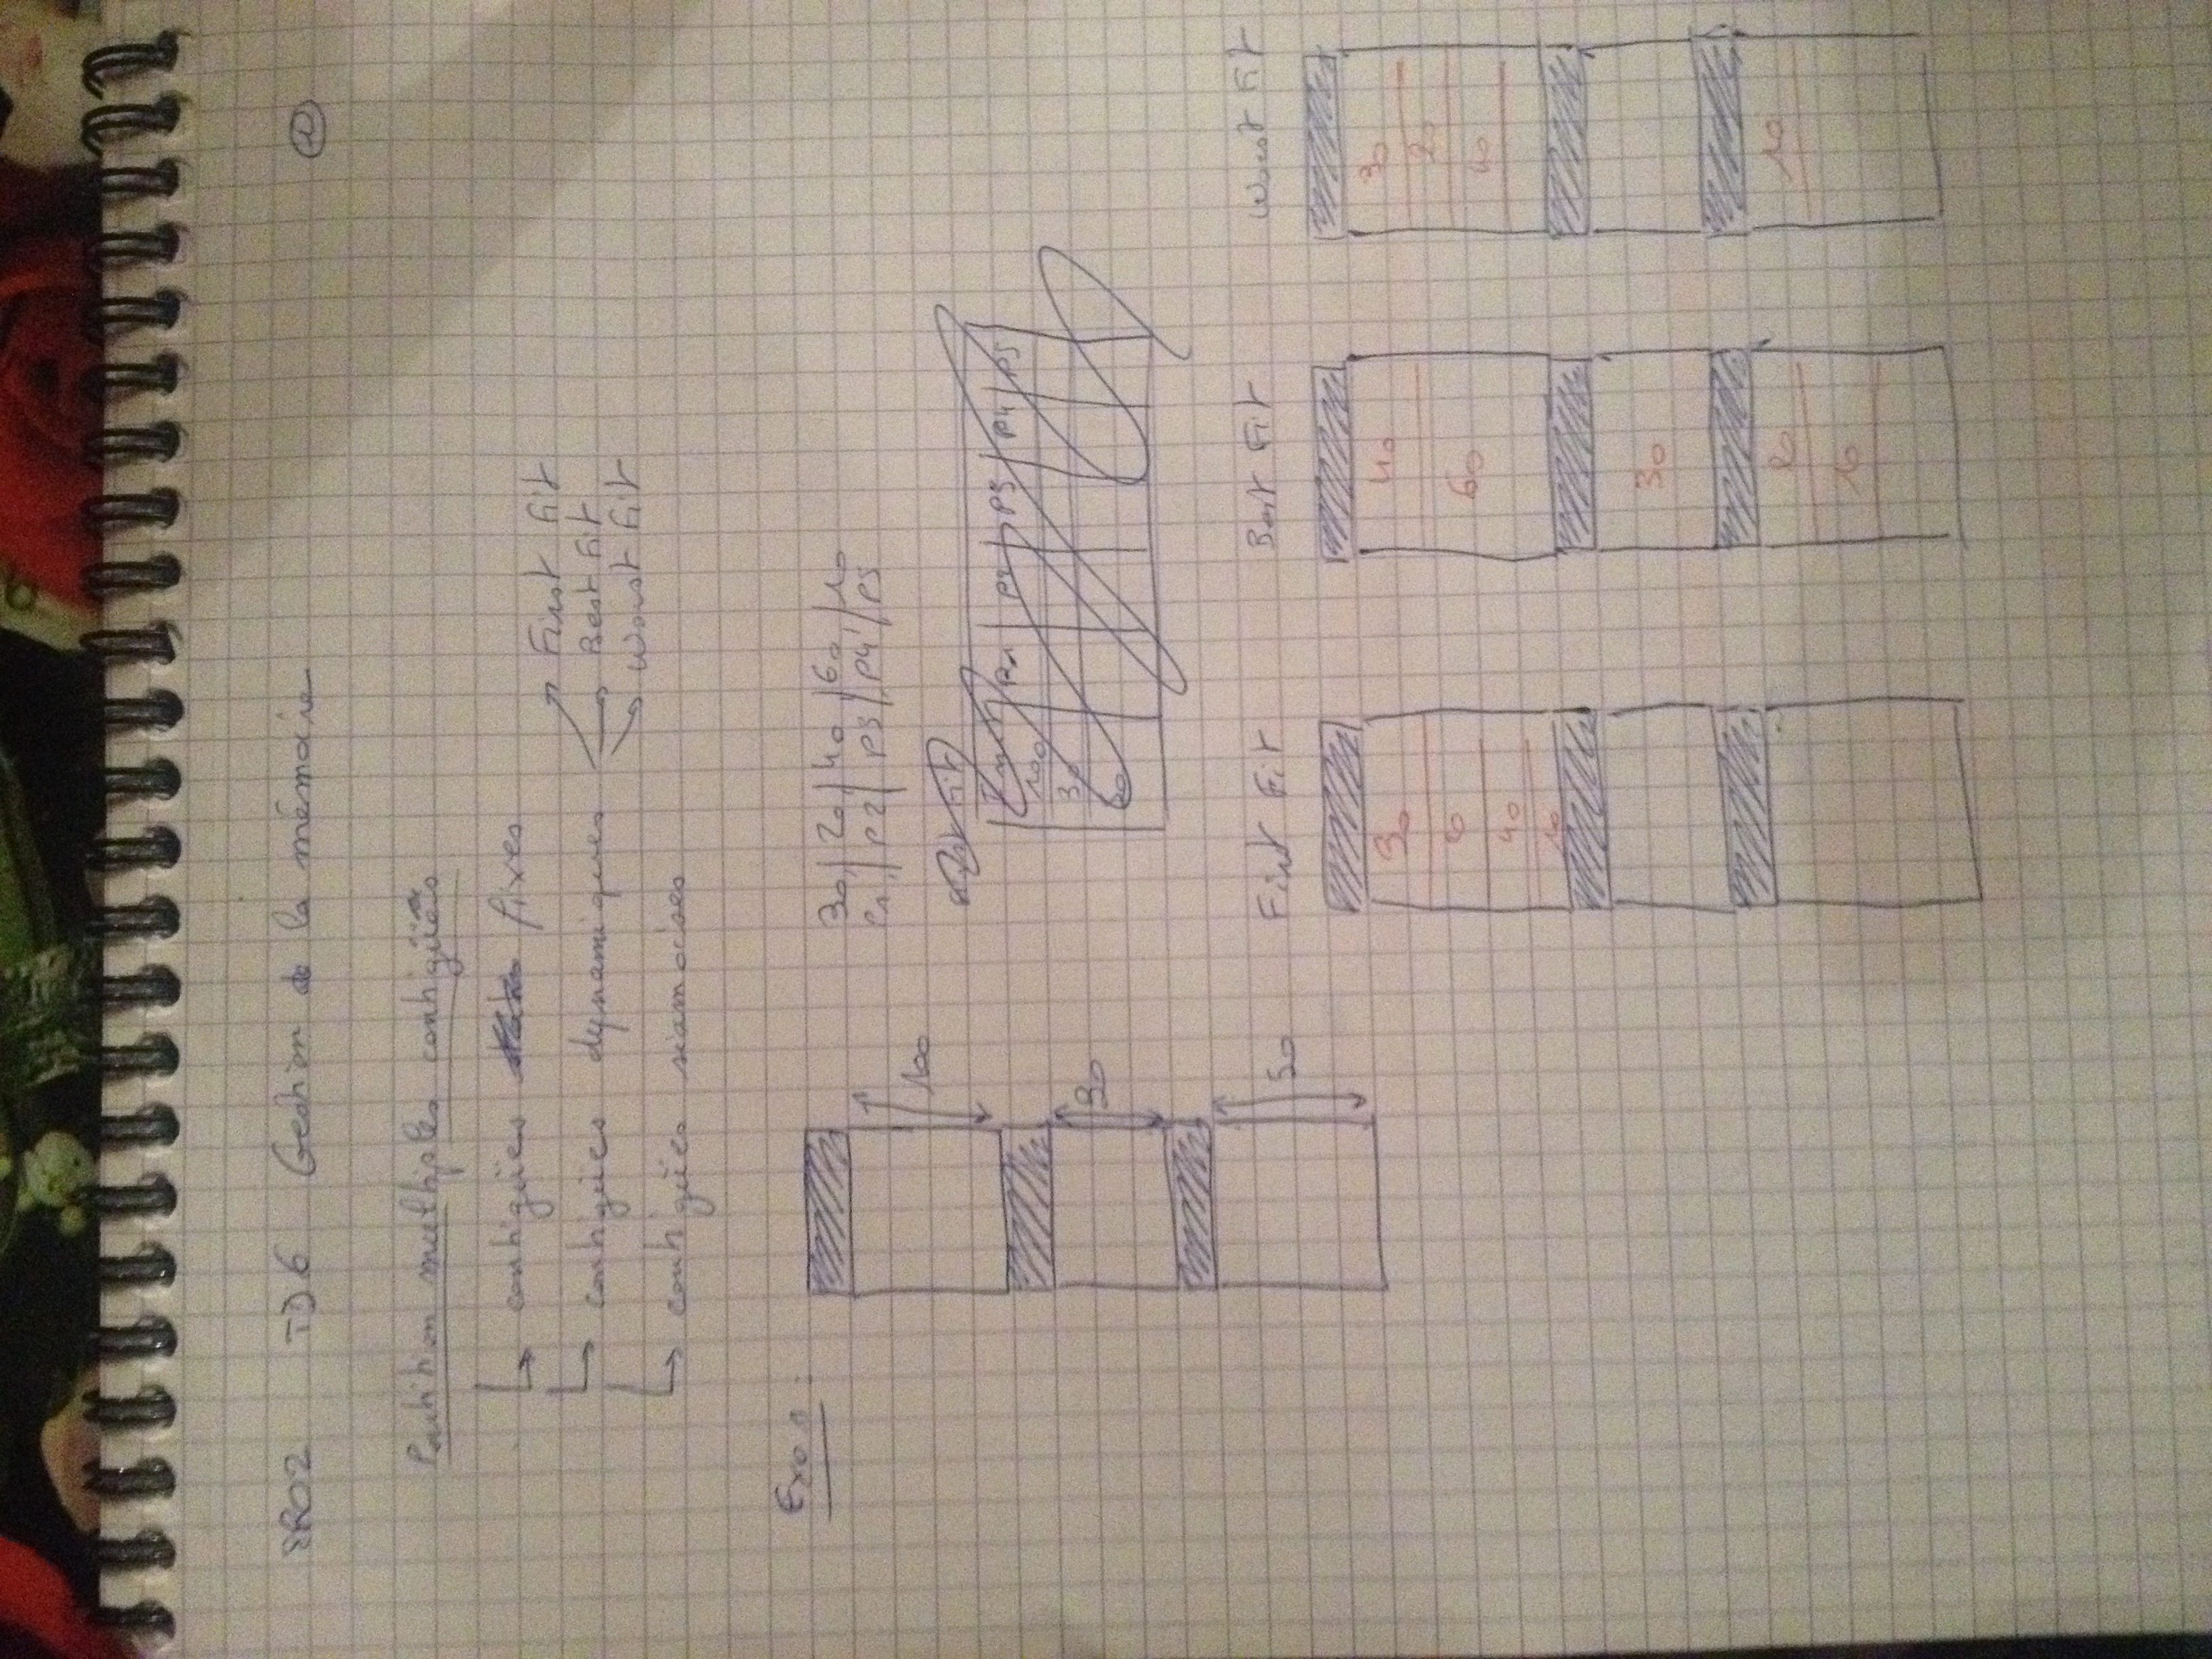 SR02 TD6 Gestion de la mémoire ①
Partition multiples contigües
contigües fixes
contigües dynamiques
First Fit
Best Fit
Worst Fit
contigües siamoises
Exo 1 :
100
30
50
30, | 20, | 40, | 60, | 10
P1, | P2 | P3 | P4 | P5
Fit
P1 P2 P3 P4 P5
100
30
50
First Fit Best Fit Worst Fit
30
20
40
10
40
60
30
20
10
30
20
40
10